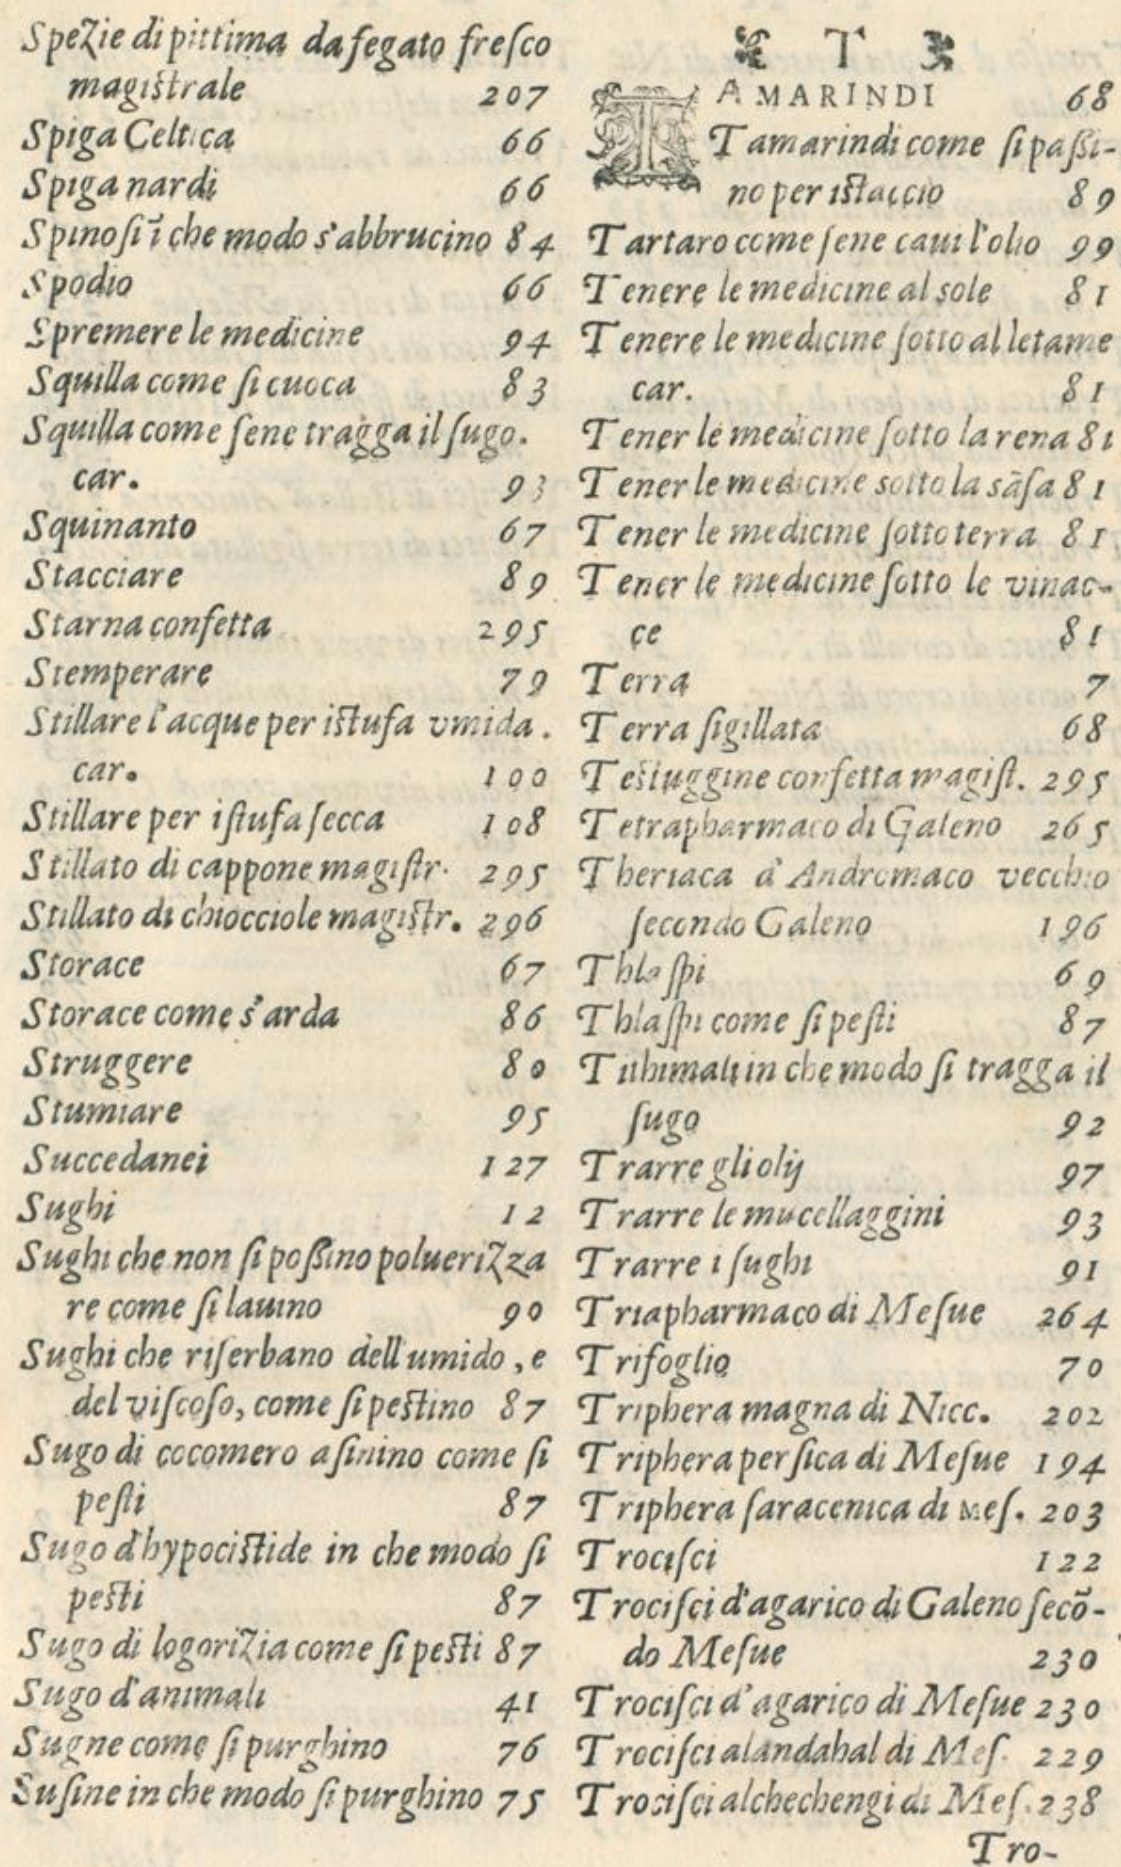 Speʒie di pittima da fegato freſco
magiſtrale 207
Spiga Celtica 66
Spiga nardi 66
Spinoſi ī che modo s'abbrucino 84
Spodio 66
Spremere le medicine 94
Squilla come ſi cuoca 83
Squilla come ſene tragga il ſugo.
car. 93
Squinanto 67
Stacciare 89
Starna confetta 295
Stemperare 79
Stillare l'acque per iſtufa vmida.
car. 100
Stillare per iſtufa ſecca 108
Stillato di cappone magiſtr. 295
Stillato di chiocciole magiſtr. 296
Storace 67
Storace come s'arda 86
Struggere 80
Stumiare 95
Succedanei 127
Sughi 12
Sughi che non ſi poſſino polueriʒza
re come ſi lauino 90
Sughi che riſerbano dell umido, e
del viſcoſo, come ſi peſtino 87
Sugo di cocomero aſinino come ſi
peſti 87
Sugo d'hypociſtide in che modo ſi
peſti 87
Sugo di logoriʒia come ſi peſti 87
Sugo d'animali 41
Sugne come ſi purghino 76
Suſine in che modo ſi purghino 75
T
TAMARINDI 68
Tamarindi come ſi paſſi-
no per iſtaccio 89
Tartaro come ſene caui l'olio 99
Tenere le medicine al sole 81
Tenere le medicine ſotto al letame
car. 81
Tener le medicine ſotto la rena 81
Tener le medicine sotto la sāſa 81
Tener le medicine ſotto terra 81
Tener le medicine ſotto le vinac-
ce 81
Terra 7
Terra ſigillata 68
Teſtuggine confetta magiſt. 295
Tetrapharmaco di Galeno 265
Theriaca d'Andromaco vecchio
ſecondo Galeno 196
Thlaſpi 69
Thlaſpi come ſi peſti 87
Tithimali in che modo ſi tragga il
ſugo 92
Trarre gli olij 97
Trarre le mucellaggini 93
Trarre i ſughi 91
Triapharmaco di Meſue 264
Trifoglio 70
Triphera magna di Nicc. 202
Triphera perſica di Meſue 194
Triphera ſaracenica di Meſ. 203
Trociſci 122
Trociſci d'agarico di Galeno ſecō-
do Meſue 230
Trociſci d'agarico di Meſue 230
Trociſci alandahal di Meſ. 229
Trociſci alchechengi di Meſ. 238
Tro-